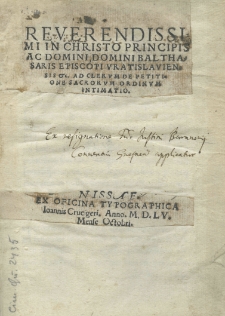 REVERENDISSI
MI IN CHRISTO PRINCIPIS
AC DOMINI, DOMINI BALTHA
SARIS EPISCOPI VRATISLAVIEN
SIS &c. AD CLERVM DE PETITI
ONE SACRORVM ORDINVM
INTIMATIO.
Ex resignatione
Conventui applicatur
NISSAE.
EX OFICINA TYPOGRAPHICA
Ioannis Crucigeri. Anno. M. D. LV.
Mense Octobri.